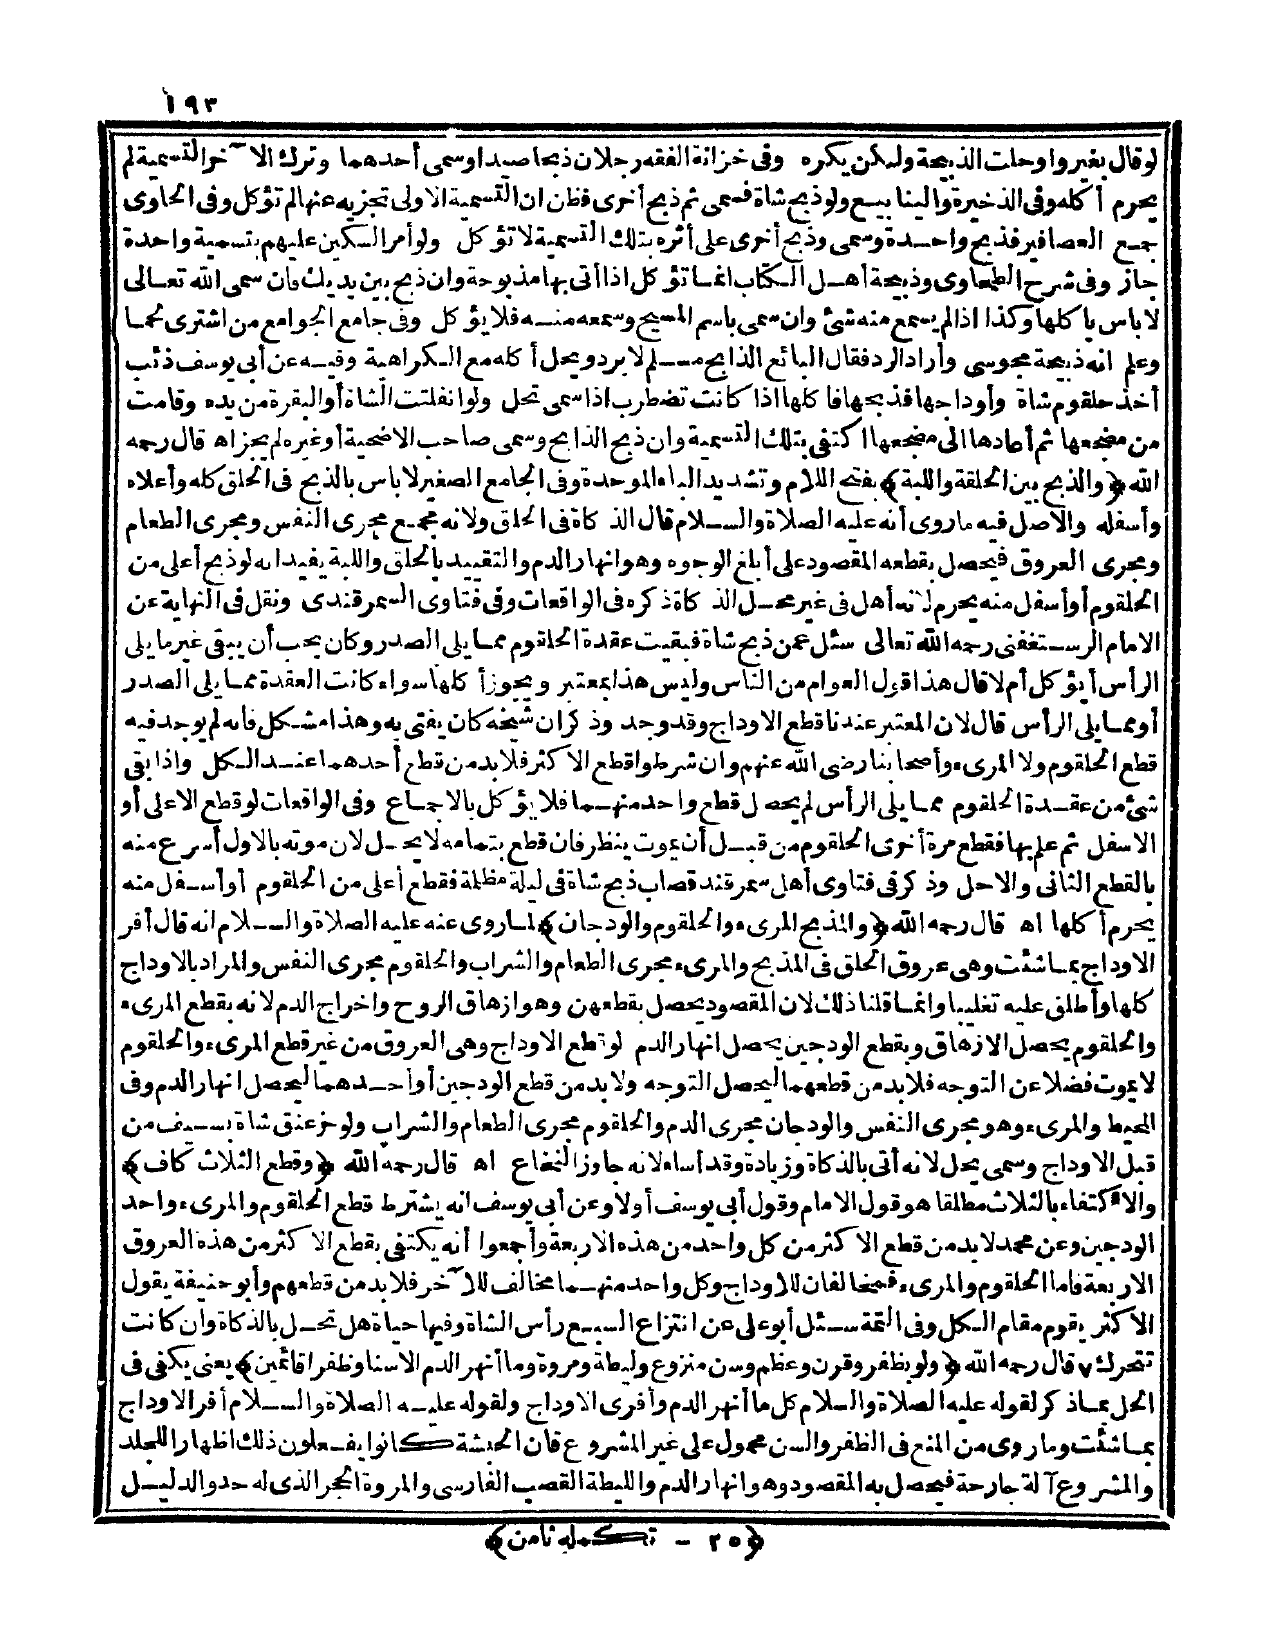 ١٩٣
لو قال بغير واو حلت الذبيحة ولكن يكره وفى خزانة الفقه رجلان ذبحا صيدا وسمى أحدهما وترك الآخر التسمية لم
يحرم أكله وفى الذخيرة والينابيع ولو ذبح شاة فسمى ثم ذبح أخرى فظن ان التسمية الاولى تجزيه عنها لم تؤكل وفى الحاوى
جمع العصافير فذبح واحدة وسمى وذبح أخرى على أثره بتلك التسمية لا تؤكل ولو أمر السكين عليهم بتسمية واحدة
جاز وفى شرح الطحاوى وذبيحة أهل الكتاب انما تؤكل اذا أتى بها مذبوحة وان ذبح بين يديك فان سمى الله تعالى
لا باس باكلها وكذا اذا لم يسمع منه شئ وان سمى باسم المسيح وسمعه منه فلا يؤكل وفى جامع الجوامع من اشترى لحما
وعلم انه ذبيحة مجوسى وأراد الرد فقال البائع الذابح مسلم لا يرد ويحل أكله مع الكراهية وفيه عن أبى يوسف ذئب
أخذ حلقوم شاة وأوداجها فذبحها فاكلها اذا كانت تضطرب اذا سمى تحل ولو انفلتت الشاة أو البقرة من يده وقامت
من مضجعها ثم أعادها الى مضجعها اكتفى بتلك التسمية وان ذبح الذابح وسمى صاحب الاضحية أو غيره لم يجز اه قال رحمه
الله ﴿والذبح بين الحلقة واللبة﴾ بفتح اللام وتشديد الباء الموحدة وفى الجامع الصغير لا باس بالذبح فى الحلق كله وأعلاه
وأسفله والاصل فيه ما روى أنه عليه الصلاة والسلام قال الذكاة فى الحلق ولانه مجمع مجرى النفس ومجرى الطعام
ومجرى العروق فيحصل بقطعه المقصود على أبلغ الوجوه وهو انهار الدم والتقييد بالحلق واللبة يفيد انه لو ذبح أعلى من
الحلقوم أو أسفل منه يحرم لانه أهل فى غير محل الذكاة ذكره فى الواقعات وفى فتاوى السمرقندى ونقل فى النهاية عن
الامام الرستغفنى رحمه الله تعالى سئل عمن ذبح شاة فبقيت عقدة الحلقوم مما يلى الصدر وكان يجب أن يبقى غير ما يلى
الرأس أيؤكل أم لا قال هذا قول العوام من الناس وليس هذا بمعتبر ويجوز أكلها سواء كانت العقدة مما يلى الصدر
أو مما يلى الرأس قال لان المعتبر عندنا قطع الاوداج وقد وجد وذكر ان شيخه كان يفتى به وهذا مشكل فانه لم يوجد فيه
قطع الحلقوم ولا المرىء وأصحابنا رضى الله عنهم وان شرطوا قطع الاكثر فلا بد من قطع أحدهما عند الكل واذا بقى
شئ من عقدة الحلقوم مما يلى الرأس لم يحصل قطع واحد منهما فلا يؤكل بالاجماع وفى الواقعات لو قطع الاعلى أو
الاسفل ثم علم بها فقطع مرة أخرى الحلقوم من قبل أن يموت ينظر فان قطع بتمامه لا يحل لان موته بالاول أسرع منه
بالقطع الثانى والا حل وذكر فى فتاوى أهل سمرقند قصاب ذبح شاة فى ليلة مظلمة فقطع أعلى من الحلقوم أو أسفل منه
يحرم أكلها اه قال رحمه الله ﴿والمذبح المرىء والحلقوم والودجان﴾ لما روى عنه عليه الصلاة والسلام انه قال أفر
الاوداج بما شئت وهى عروق الحلق فى المذبح والمرىء مجرى الطعام والشراب والحلقوم مجرى النفس والمراد بالاوداج
كلها وأطلق عليه تغليبا وانما قلنا ذلك لان المقصود يحصل بقطعهن وهو ازهاق الروح واخراج الدم لانه بقطع المرىء
والحلقوم يحصل الازهاق وبقطع الودجين يحصل انهار الدم لو قطع الاوداج وهى العروق من غير قطع المرىء والحلقوم
لا يموت فضلا عن التوجه فلا بد من قطعهما ليحصل التوجه ولا بد من قطع الودجين أو أحدهما ليحصل انهار الدم وفى
المحيط والمرىء وهو مجرى النفس والودجان مجرى الدم والحلقوم مجرى الطعام والشراب ولو حز عنق شاة بسيف من
قبل الاوداج وسمى يحل لانه أتى بالذكاة وزيادة وقد أساء لانه جاوز النخاع اه قال رحمه الله ﴿وقطع الثلاث كاف﴾
والاكتفاء بالثلاث مطلقا هو قول الامام وقول أبى يوسف أولا وعن أبى يوسف انه يشترط قطع الحلقوم والمرىء واحد
الودجين وعن محمد لا بد من قطع الاكثر من كل واحد من هذه الاربعة وأجمعوا أنه يكتفى بقطع الاكثر من هذه العروق
الاربعة فاما الحلقوم والمرىء فمخالفان للاوداج وكل واحد منهما مخالف للآخر فلا بد من قطعهم وأبو حنيفة يقول
الاكثر يقوم مقام الكل وفى التتمة سئل أبو على عن انتزاع السبع رأس الشاة وفيها حياة هل تحل بالذكاة وان كانت
تتحرك ٧ قال رحمه الله ﴿ولو بظفر وقرن وعظم وسن منزوع وليطة ومروة وما أنهر الدم الا سنا وظفرا قائمين﴾ يعنى يكفى فى
الحل بما ذكر لقوله عليه الصلاة والسلام كل ما أنهر الدم وأفرى الاوداج ولقوله عليه الصلاة والسلام أفر الاوداج
بما شئت وما روى من المنع فى الظفر والسن محمول على غير المشروع فان الحبشة كانوا يفعلون ذلك اظهارا للجلد
والمشروع آلة جارحة فيحصل به المقصود وهو انهار الدم والليطة القصب الفارسى والمروة الحجر الذى له حد والدليل
﴿٢٥ - تكمله ثامن﴾